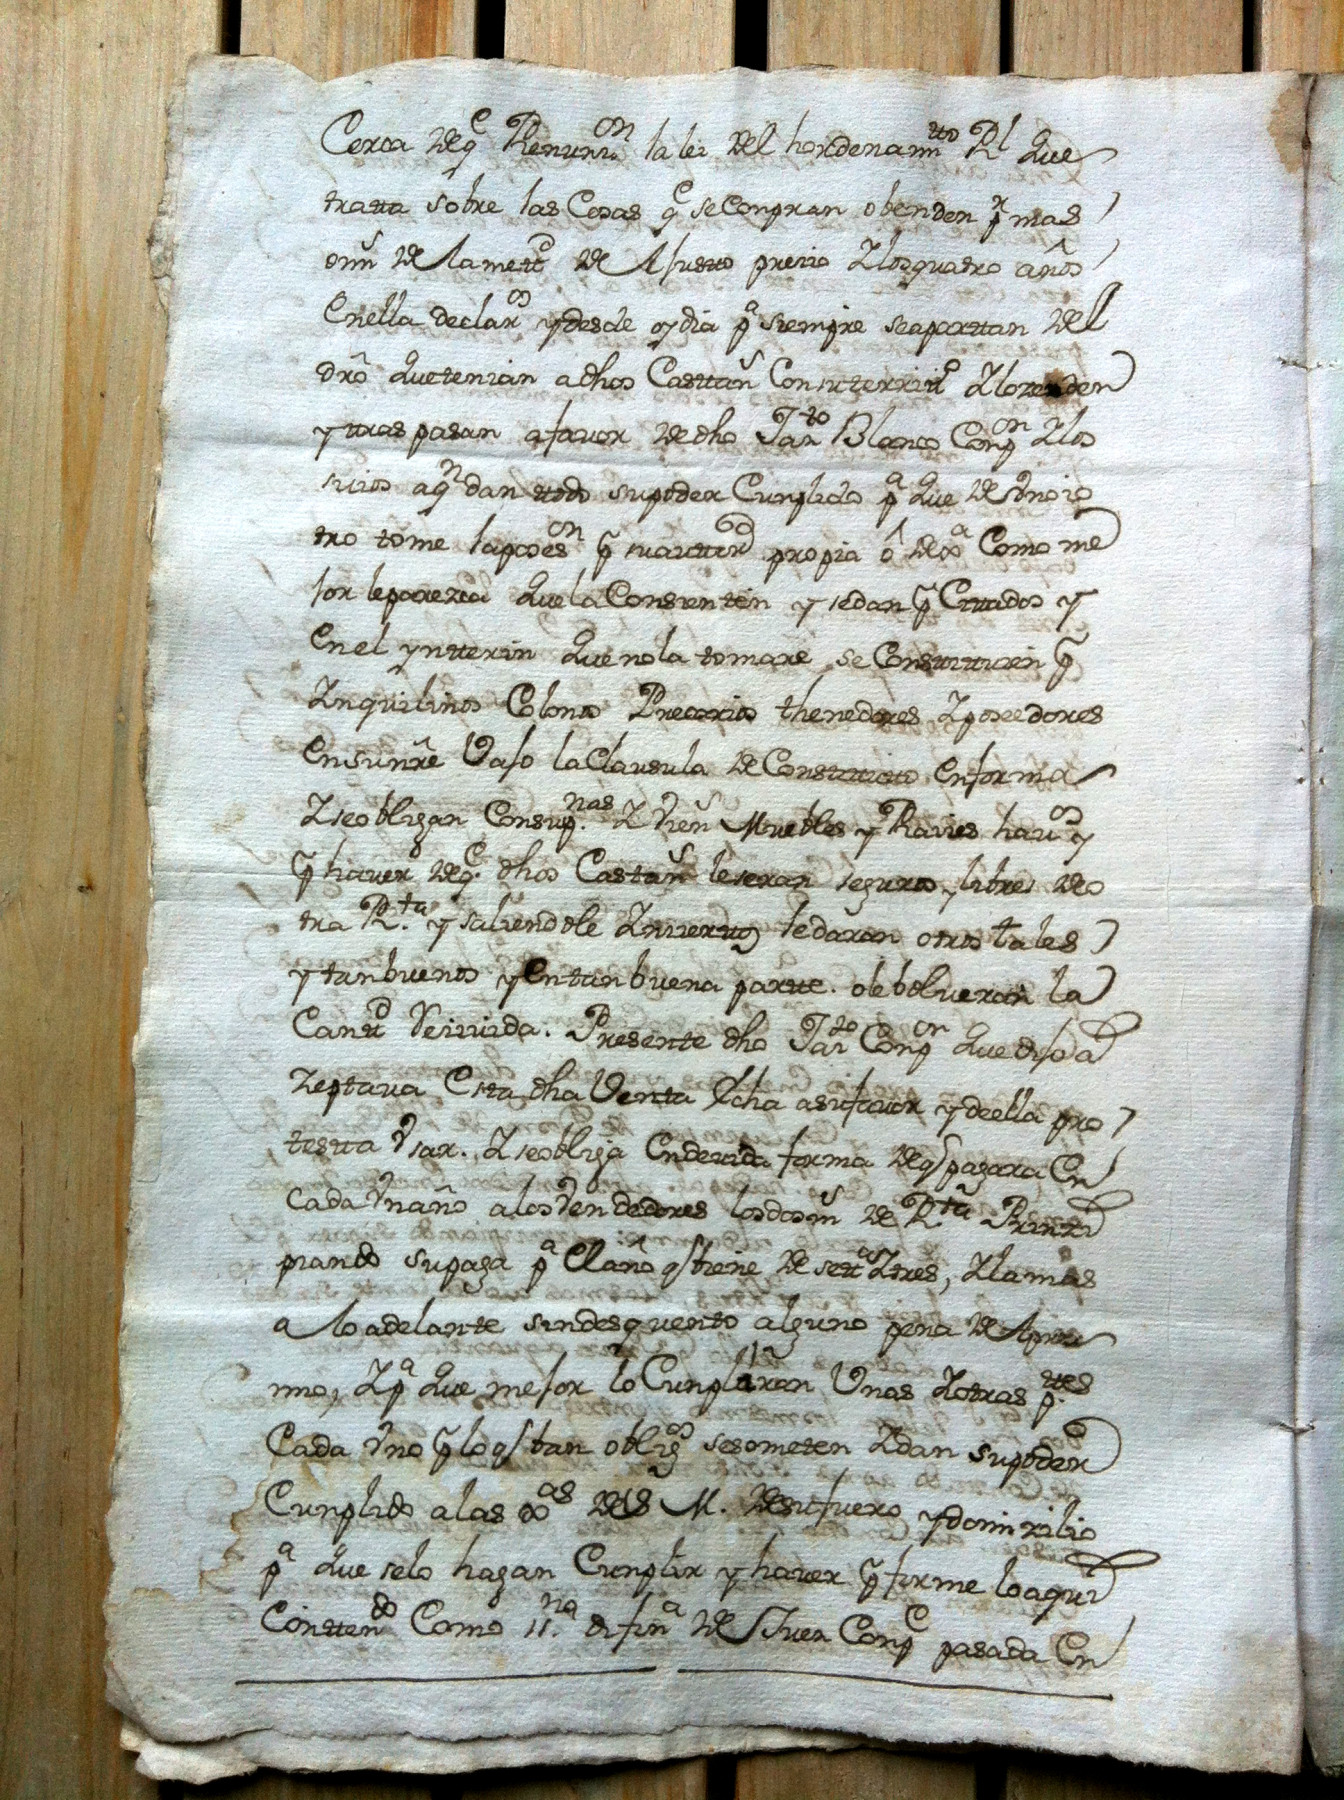 Cerca deq^e Renunz^on la lei del hordenam^tto R^l que
tratta sobre las Cosas q^e se Conpran o benden p^r mas
o m^s de la mett^d de Justto precio Y los quatro años
En ella declar^os y desde oy dia p^a siempre se aparttan del
dro que tenian a dhos Casttañ^s Con su territt^o Y lo zenden
y tras pasan a favor de dho Jaz^to Blanco Conp^on Y los
suios a q^n dan ttodo su poder Cunplido p^a que de su ofizio
tro tome la poses^on p^r su auttorid^ad propia o de Jus^a Como me
jor le parezca que la Consienten y se dan p^r Cittados y
En el yntterin que no la tomare se Consttituien p^r
Ynquilinos Colonos Precarios thenedores Y poseedores
En su nre Vajo la Clausula de Consttituto En forma
Y se obligan Con sus p.^nas Y vien^s Muebles y Raizes hav^os y
p^r haver de q^e dhos Castañ^s le seran seguros y libres de o
tra R.^ta y saliendole Ynziertos le daran otros tales
y tan buenos y En tan buena partte. o le bolveran la
Cantt^d Rezivida. Presente dho Jaz^to Conp^or que dijo a
Zeptava Esta dha Venta fcha a su favor y de ella pro
testta vsar. Y se obliga En devida forma de q^e pagara En
Cada vn año a los vendedores los dos m^s de R^ta Prinzi
piando su paga p^a El año q^e biene de sett^a Y tres, Y la mas
a lo adelante sin desquento alguno pena de Apre
mio, Y p^a que mejor lo Cunpliran Unas Y otras p.^ttes
Cada vno p^r lo q^e ban oblig^os se someten Y dan su poder
Cunplido a las Jus^as de S. M. de su fuero y domizilio
p^a que se lo hagan Cunplir y haver p^r firme lo aqui
Contten^do Como s.^na difin^a de Juez Conp^e pasada En